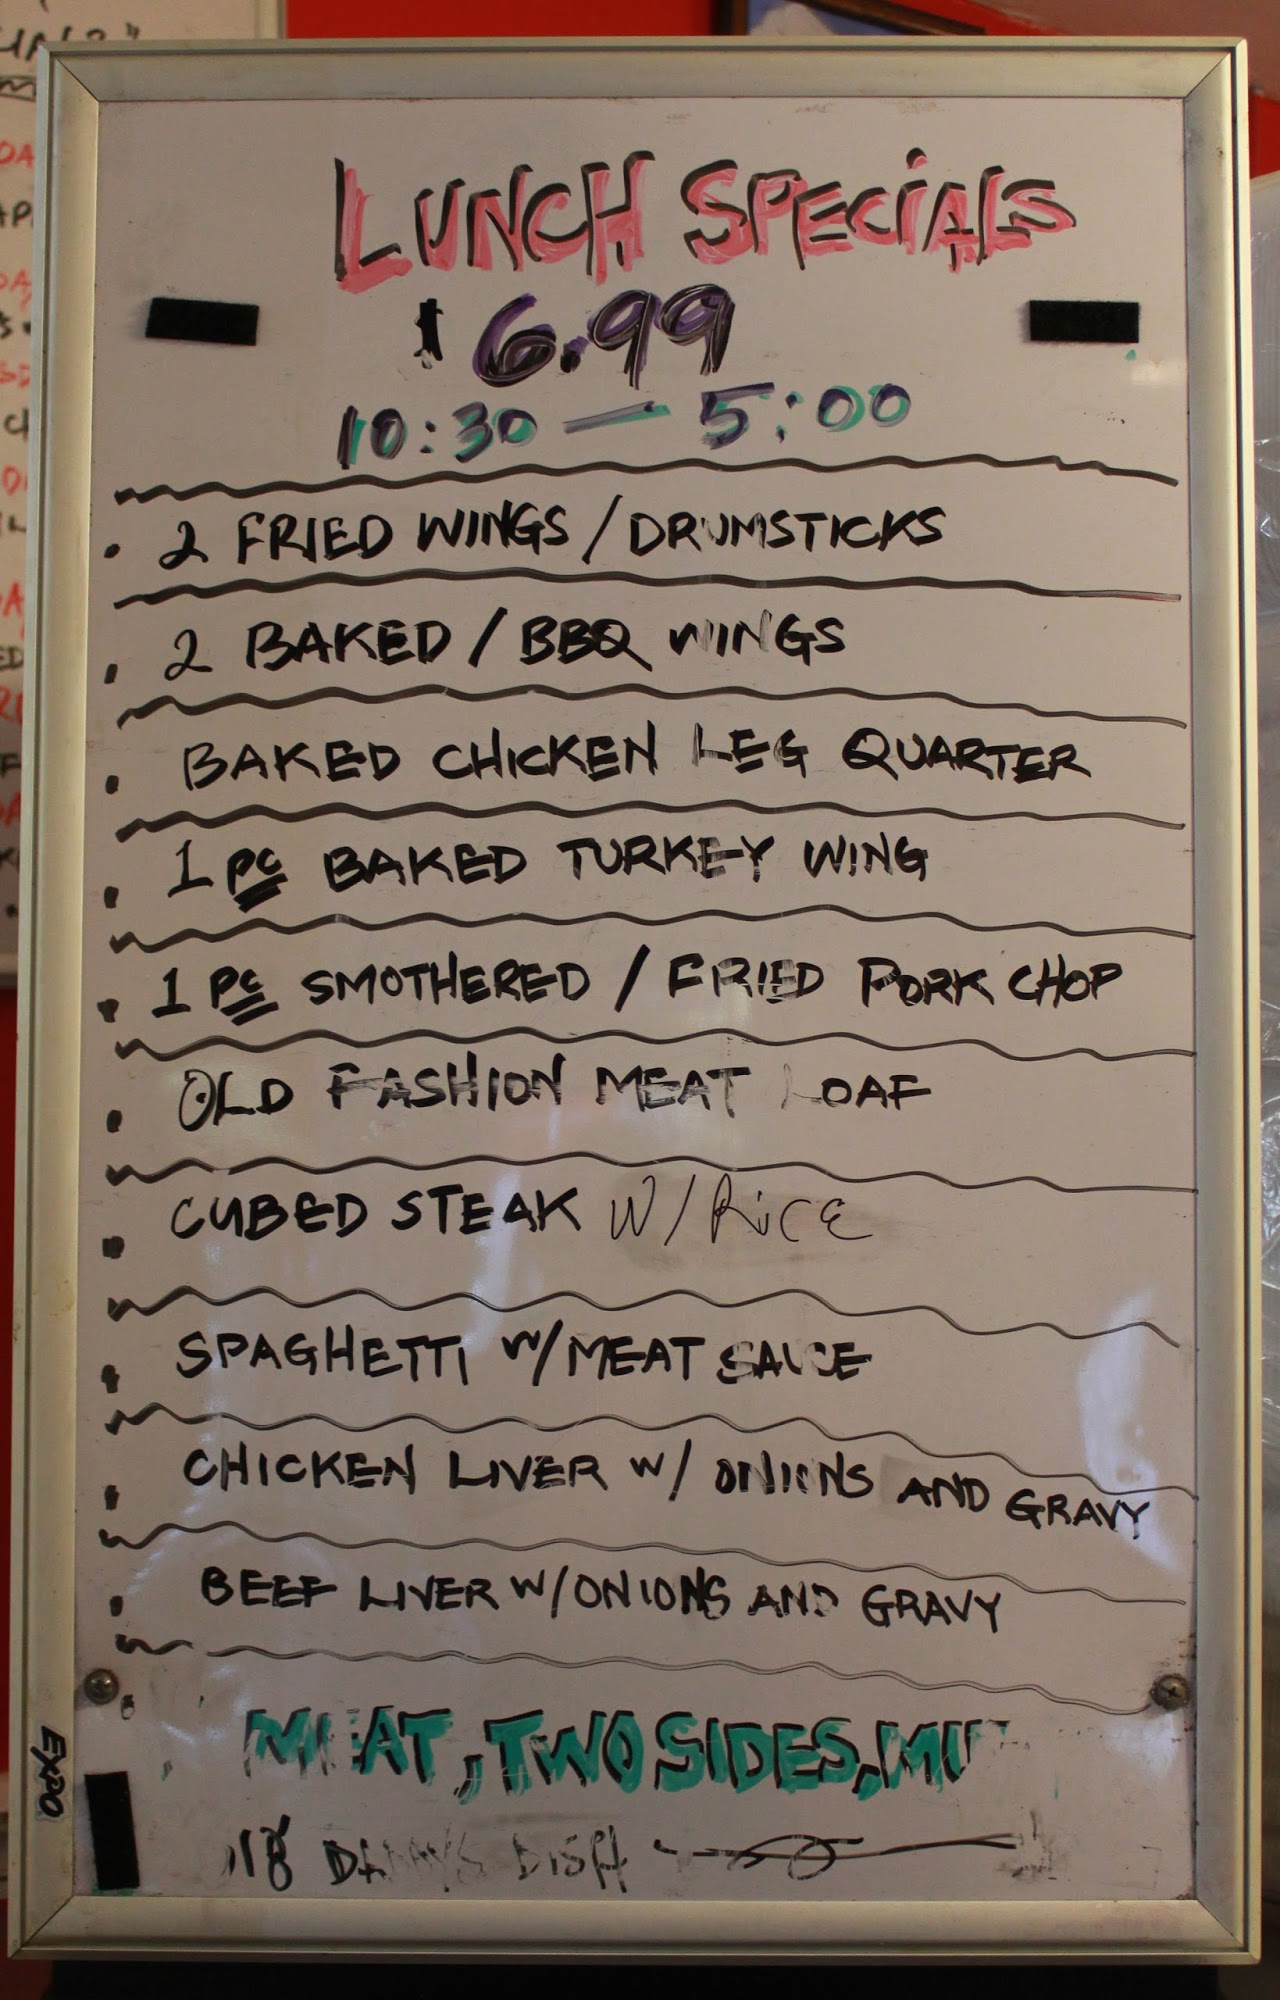 LUNCH SPECIALS
$6.99
10:30 — 5:00
• 2 FRIED WINGS / DRUMSTICKS
• 2 BAKED / BBQ WINGS
• BAKED CHICKEN LEG QUARTER
• 1 PC BAKED TURKEY WING
• 1 PC SMOTHERED / FRIED PORK CHOP
• OLD FASHION MEAT LOAF
• CUBED STEAK W/ RiCE
• SPAGHETTI W/MEAT SAUCE
• CHICKEN LIVER W/ ONIONS AND GRAVY
• BEEF LIVER W/ONIONS AND GRAVY
MEAT, TWO SIDES,
DISH
EXPO